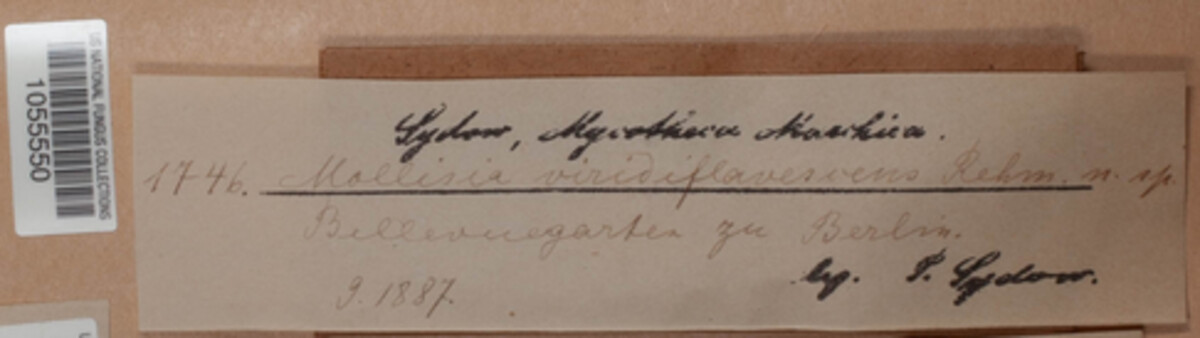 US NATIONAL FUNGUS COLLECTIONS
1055550
Sydow, Mycotheca Marchica.
1746. Mollisia viridiflavescens Rehm. n. sp.
Bellevuegarten zu Berlin.
9. 1887.
leg. P. Sydow.